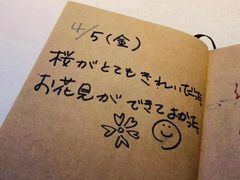 4/5(金)
桜がとてもきれいだった。
お花見ができてよかった。